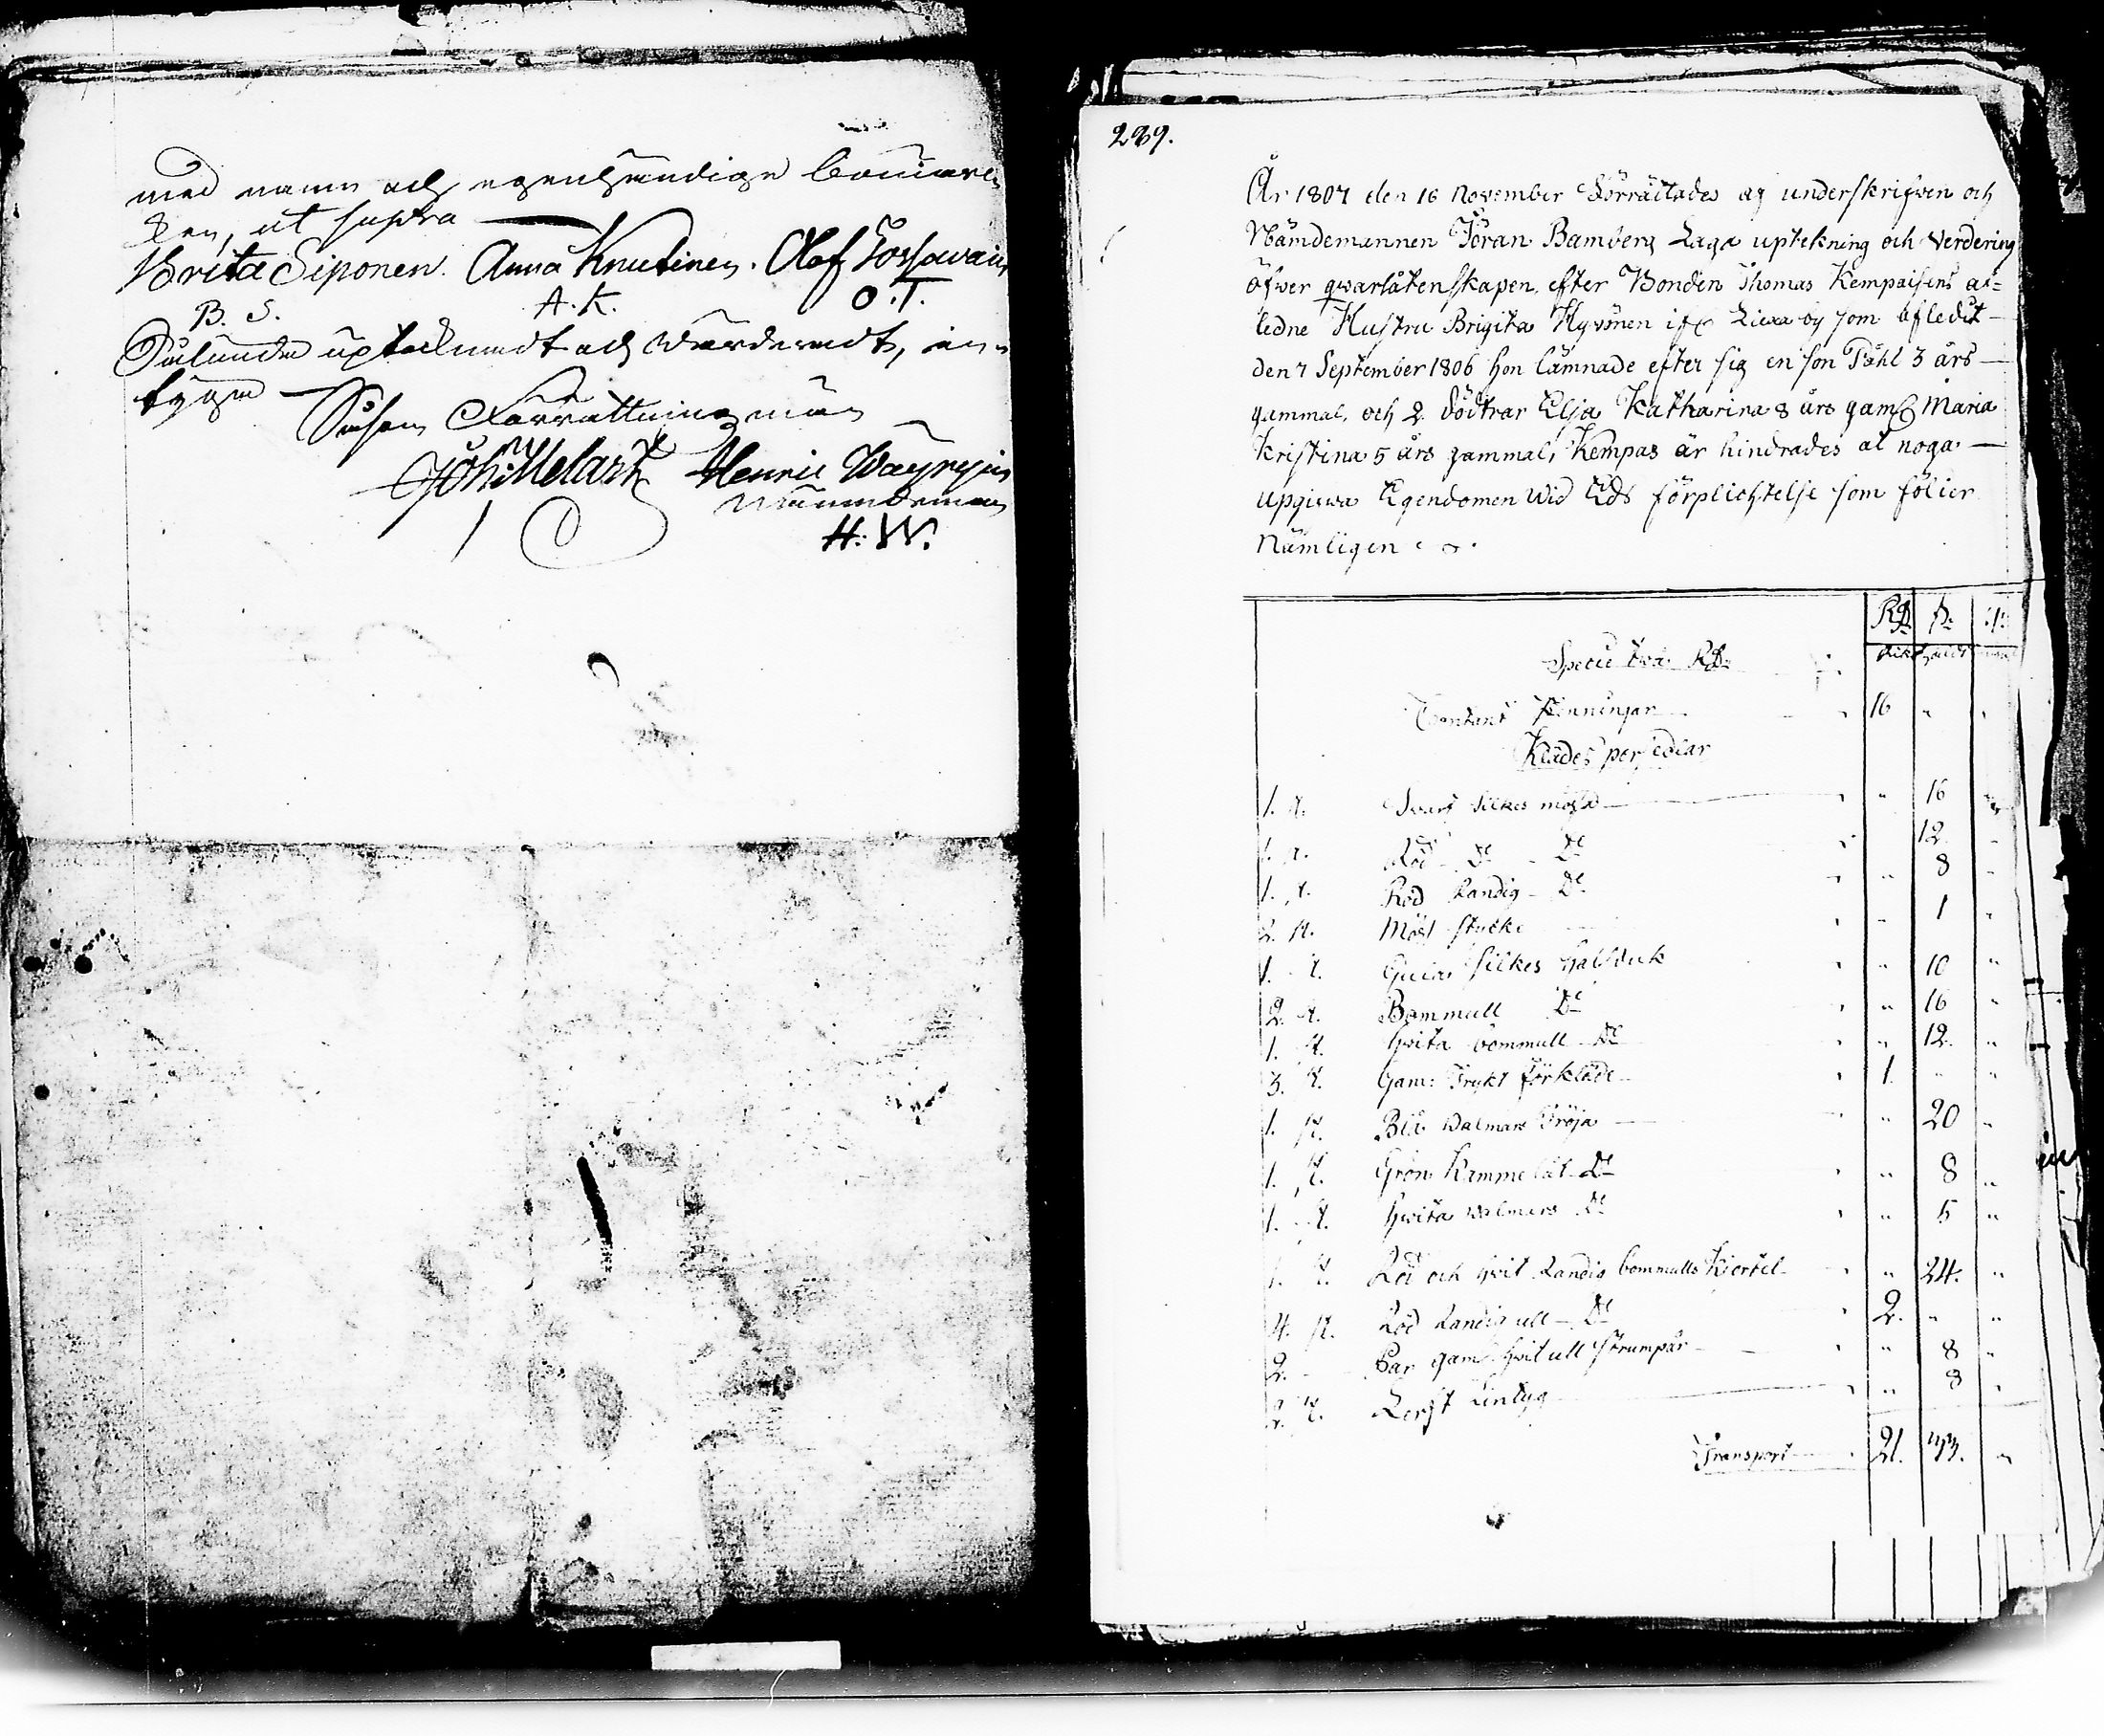 med namn och egenhändige bomärc
ken, ut supra
Brita Siponen. Anna Knutinen. Olof Tossavain
B. S. A. K. O. T.
Sålunda uptecknadt och värderadt, in
tygom
Såsom Förrättningsmän
Joh: Melart Henric Wäyryin
Nämndeman
H. W.
289.
År 1807 den 16 November Förrättades af underskrifven och
Nämdemannen Jöran Bamberg Laga uptekning och Verdering
öfwer qwarlåtenskapen, efter Bonden Thomas Kempaisens af=
ledne Hustru Brigita Hyvönen Liexa by som afledit
den 7 September 1806 hon lämnade efter sig en son Påhl 3 års
gammal, och 2 döttrar Elsa Katharina 8 års gaml Maria
Kristina 5 års gammal, Kempas är hindrades at noga
upgiwa Egendomen wid Eds förplichtelse som följer
Nämligen
RD s:
Specie två RD
Contant Penningar 16 " "
Klädes persedlar
1. st. Svart silkes mössa " 16 "
1. st. Röd D:o D:o 12. "
1. st. Röd Randig D:o " 8 "
2. st. Möss stycke " 1 "
1. st. silkes halsduk " 10 "
2. st. Bommull D:o " 16 "
1. st. Hvita bommull D:o " 12. "
3. st. Gam: Trykt förkläde 1. " "
1. st. Blå Walmars Tröja " 20 "
1. st. Grön Kammelåt D:o " 8 "
1. st. Hvita walmars D:o " 5 "
1. st. Röd och hvit Randig bommulls Kjortel " 24. "
4. st. Röd Randig ull D:o 2. " "
2. Par gam hvit ull strumpor " 8 "
2. st. Lerft Lintyg " 8 "
Transport 21. 43. "